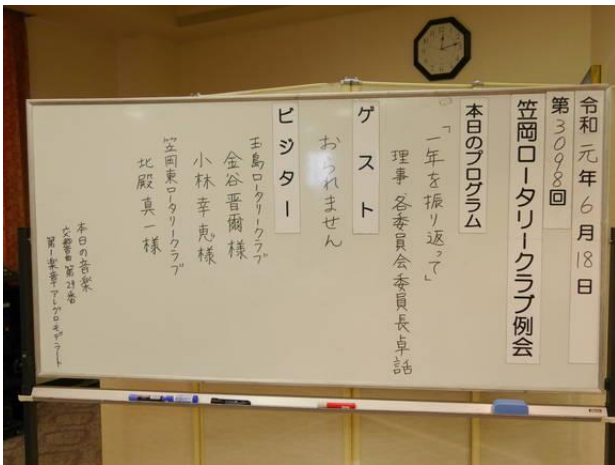 令和元年6月18日
第3098回
笠岡ロータリークラブ例会
本日のプログラム
「一年を振り返って」
理事 各委員会委員長卓話
ゲスト
おられません
ビジター
玉島ロータリークラブ
金谷晋爾様
小林幸恵様
笠岡東ロータリークラブ
北殿真一様
本日の音楽
交響曲第29番
第1楽章アレグロモデラート